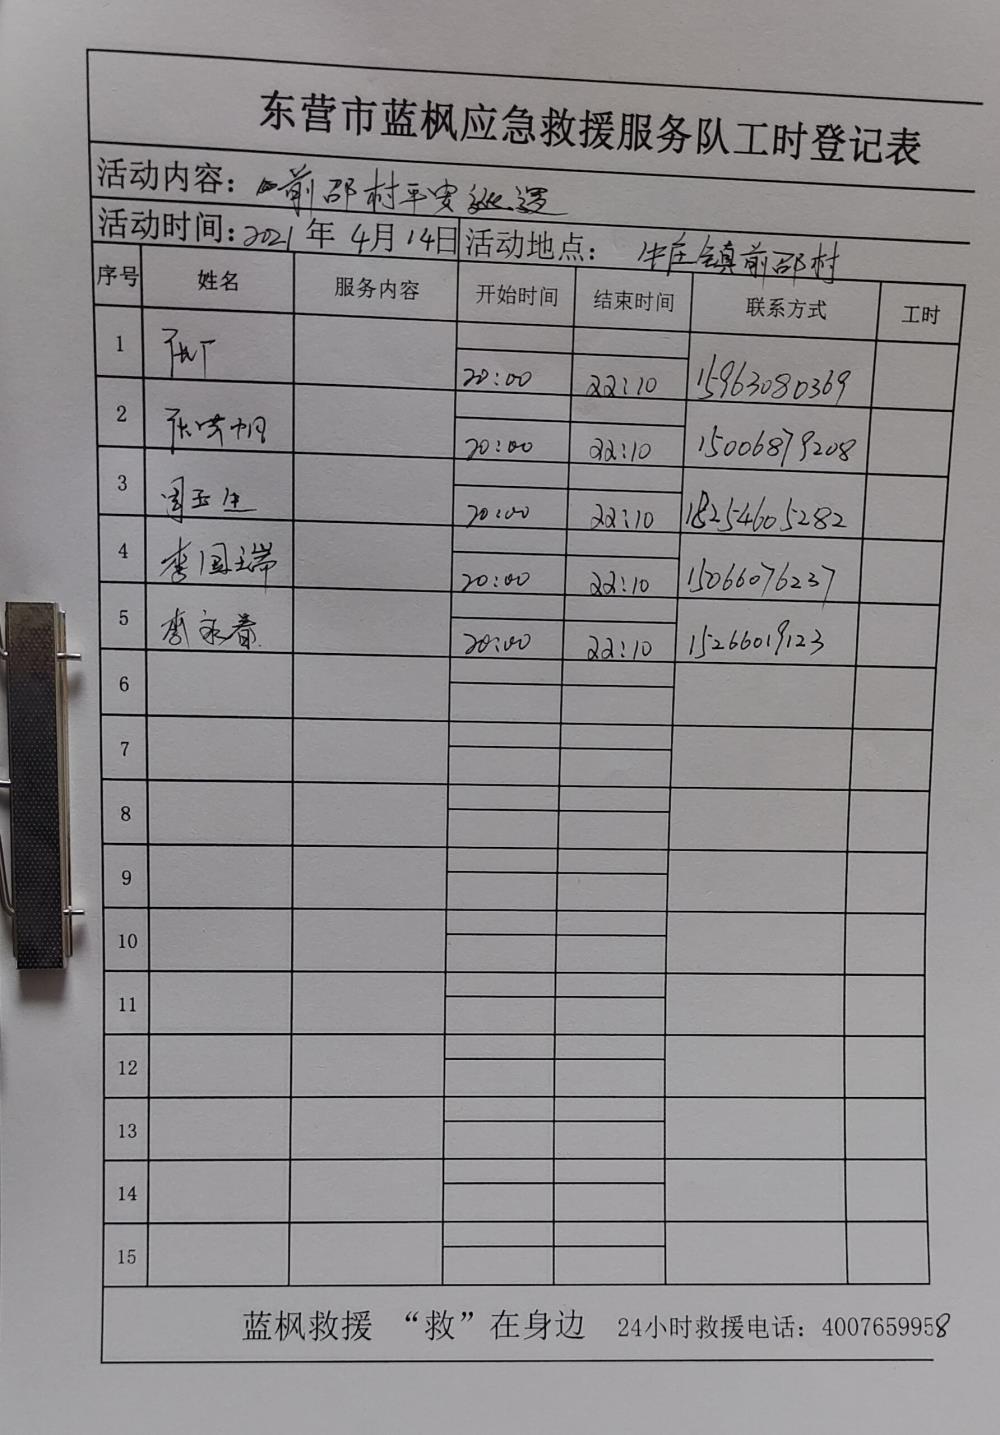 东营市蓝枫应急救援服务队工时登记表
活动内容：前邵村平安巡逻
活动时间：2021年4月14日 活动地点：牛庄镇前邵村
序号 姓名 服务内容 开始时间 结束时间 联系方式 工时
1 20:00 22:10 15963080369
2 20:00 22:10 15006879208
3 周玉生 20:00 22:10 18254605282
4 李国瑞 20:00 22:10 15066076237
5 李永春 20:00 22:10 15266019123
6
7
8
9
10
11
12
13
14
15
蓝枫救援 “救”在身边 24小时救援电话：4007659958